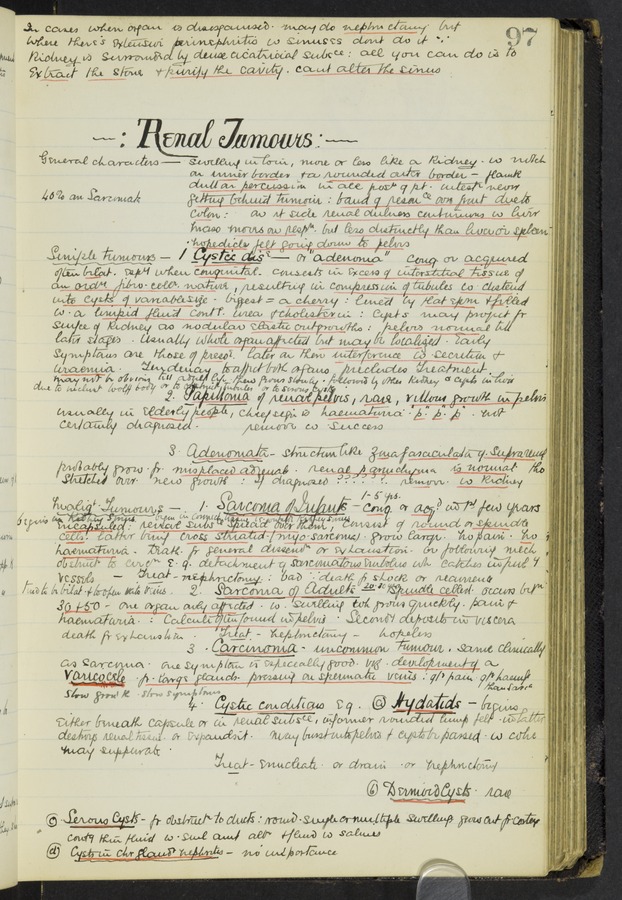 97
In cases when organ is disorganised may do nephrectomy but
where there's extensive perinephritis w sinuses dont do it ∵
Kidney is surrounded by dense cicatricial subsce: all you can do is to
Extract the stone + purify the cavity. cant alter the sinus
Renal Tumours:
General characters — swelling in loin, more or less like a Kidney w notch
on inner border + a rounded outer border – flank
40% an Sarcomata dull on percussion in all post q pt. intest never
getting behind tumour: band q resonce over front due to
Colon: on rt side renal dulness continuous w liver
mass moves on respn. but less distinctly than liver or spleen
no pedicle felt going down to pelvis
Simple tumours — 1 Cystic diss — or "adenoma" cong or acquired
often bilat. espy when congenital. consists in excess q interstitial tissue of
an ordy fibro-cellr nature, resulting in compression q tubules w clustered
into cysts q variable size. biggest = a cherry: lined by flat epm + filled
w. a limpid fluid contg urea + cholesterin: cysts may project fr
surface q Kidney as nodular elastic outgrowths: pelvis normal till
later stages. Usually whole organ affected but may be localised. Early
Symptoms are those of presse. later on then interference w secretion +
uraemia. Tendency to affect both organs, precludes Treatment.
may not be obvious till adult life, then grows slowly. followed by other Kidney + cysts in liver
2. Papilloma of renal pelvis, rare, villous growth in pelvis
usually in Elderly people, Chief sign is haematuria "p. "p. "p. not
certainly diagnosed. remove w success
3 Adenomata – structure like Zona fasciculata q Suprarenal
probably grow fr misplaced adrenals. renal parenchyma is normal tho
stretched over new growth: If diagnosed ? ? ? ? remove w Kidney
1–5 yrs.
Malig. Tumours — 1. Sarcoma of Infants – cong or acqd in 1st few years
encapsuled. renal subsce spread over them, consist q round or spindle
cells. latter being cross striated (myo-sarcoma) grow large. no pain. no
haematuria. Death fr general dissemn or exhaustion. or following mech
obstruct to circn E.g. detachment q sarcomatous embolus wh catches in pul y
vessels — Treat – nephrectomy: bad: death fr shock or recurrence
2. Sarcoma of Adults Spindle celled. occurs betn
30 + 50 – one organ only affected. w. swelling wh grows quickly. pain +
haematuria. : Calculi often found in pelvis. Secondy deposits in viscera
death fr exhaustion. Treat. – nephrectomy – hopeless
3. Carcinoma – uncommon tumour. same clinically
as sarcoma. one symptom is especially good. viz. development q a
Varicocele fr large glands pressing on spermatic veins. gt pain gt haemat
slow growth slow symptoms than sarca
4. Cystic conditions Eg. (a) Hydatids – begins
Either beneath capsule or in renal subsce, informer rounded lump felt. in latter
destroys renal tissue. or expands it. may burst into pelvis + cysts be passed. w colic
may suppurate.
Treat – Enucleate or drain or nephrectomy
(b) Dermoid Cysts. rare
(c) Serous Cysts – fr obstruct to ducts: round single or multiple swelling grows out fr cortex
contg thin fluid w small amt albn + fluid w salines
(d) Cysts in chr. glandr nephritis – no importance